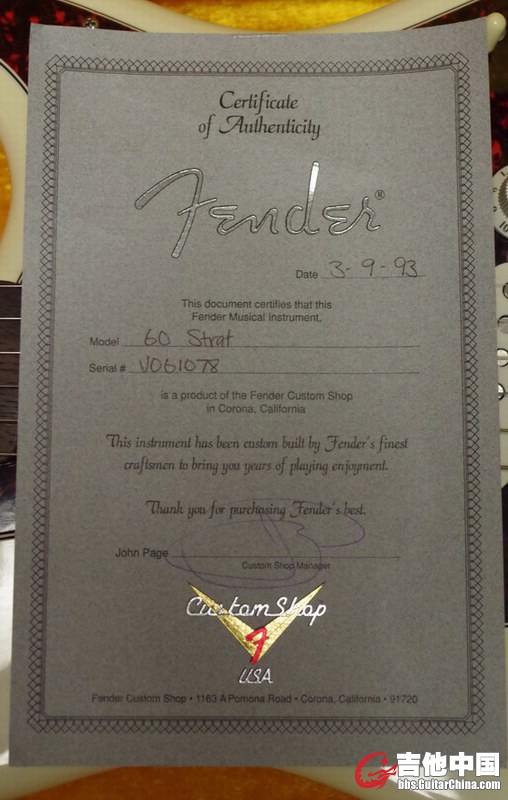 Certificate
of Authenticity
Fender®
Date 3-9-93
This document certifies that this
Fender Musical Instrument,
Model 60 Strat
Serial # V061078
is a product of the Fender Custom Shop
in Corona, California
This instrument has been custom built by Fender's finest
craftsmen to bring you years of playing enjoyment.
Thank you for purchasing Fender's best.
John Page
Custom Shop Manager
Custom Shop
F
USA
Fender Custom Shop • 1163 A Pomona Road • Corona, California • 91720
吉他中国
bbs.GuitarChina.com